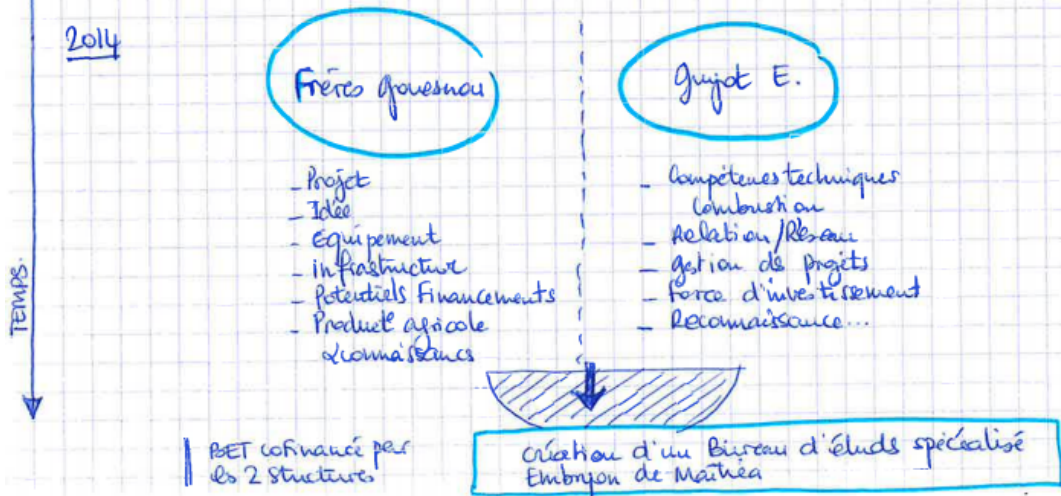 2014
Frères Gouesnou
Guyot E.
- Projet
- Idée
- équipement
- infrastructur
- Potentiels Financements
- Product° agricole
& connaissancs
- Compétences techniques
Combustion
- Relation/Réseau
- gestion de projets
- Force d'investissement
- Reconnaissance...
TEMPS.
BET cofinancé par
les 2 structures
création d'un Bureau d'études spécialisé
Embryon de Maïthéa